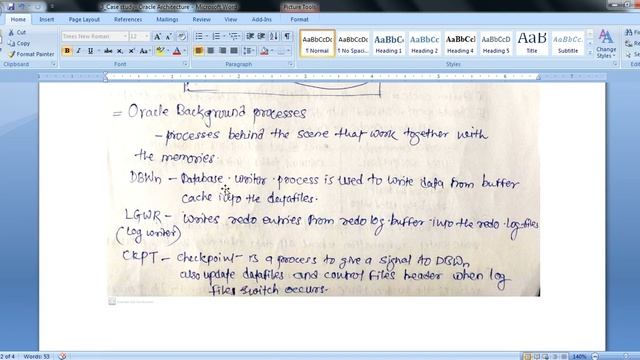 Case study- Oracle Architecture - Microsoft Word
Picture Tools
Home Insert Page Layout References Mailings Review View Add-Ins Format
Times New Roman 12
AaBbCcDc AaBbCcDc AaBbC AaBbCc AaBbCc AaBbCcI AaBbCcDc AaB AaBbCc
¶ Normal ¶ No Spaci... Heading 1 Heading 2 Heading 3 Heading 4 Heading 5 Title Subtitle
Change Styles
= Oracle Background processes
- processes behind the scene that work together with
the memories.
DBWn - Database writer process is used to write data from buffer
cache into the datafiles.
LGWR - writes redo entries from redo log buffer into the redo log files
(Log writer)
CKPT - checkpoint - is a process to give a signal to DBWn
also update datafiles and control files header when log
files switch occurs.
2 of 4 Words: 53
140%